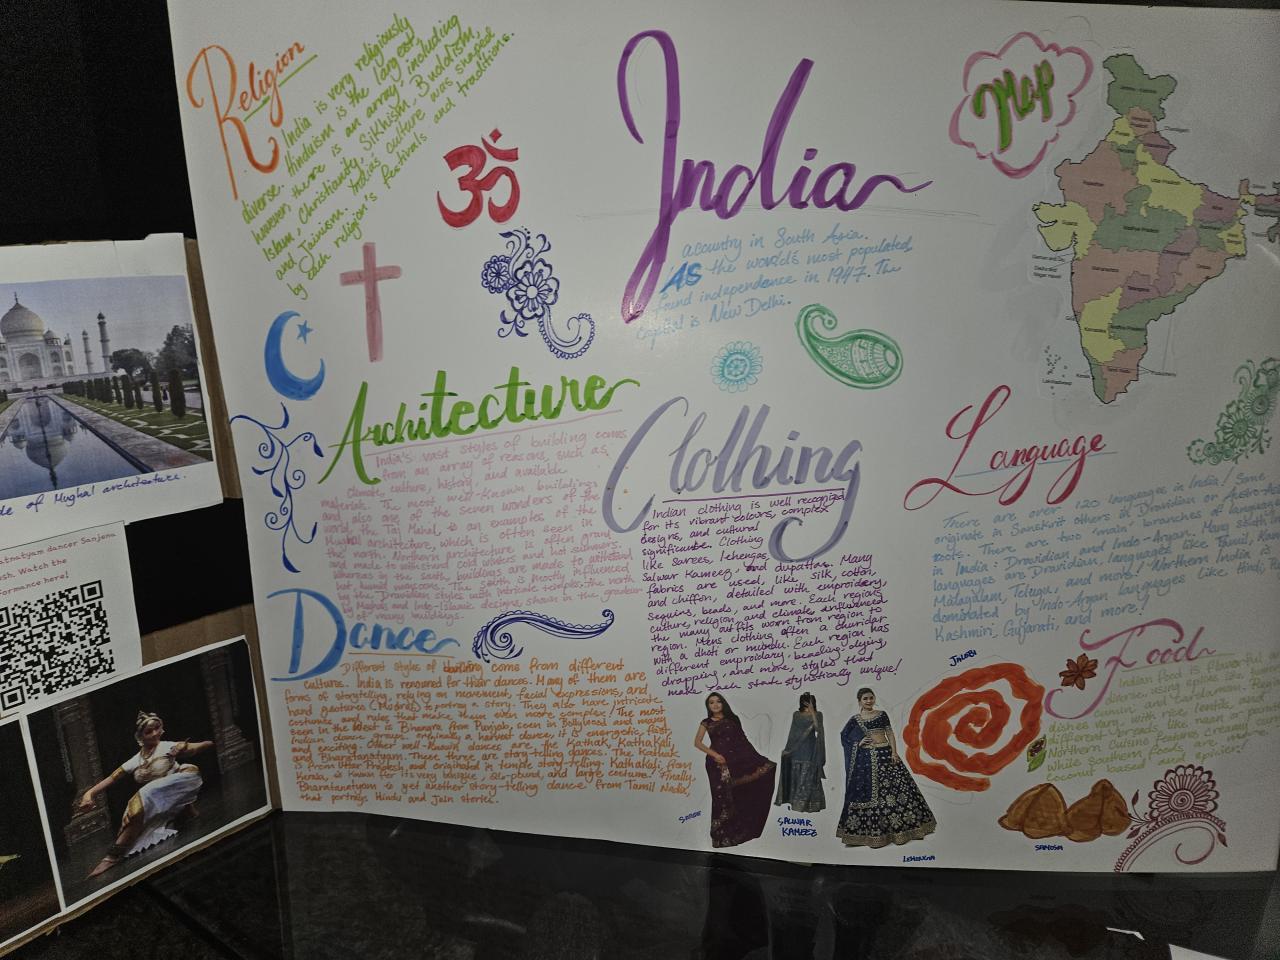 Religion
India is very religiously
diverse. Hinduism is the largest,
however, there is an array including
Islam, Christianity, Sikhism, Buddhism,
and Jainism. India's culture was shaped
by each religion's festivals and traditions.
ॐ
India
a country in South Asia.
AS the world's most populated,
found independence in 1947. The
capital is New Delhi.
Map
Architecture
India's vast styles of building comes
from an array of reasons, such as
climate, culture, history, and available
materials. The most well-known buildings
and also one of the seven wonders of the
world, the Taj Mahal, is an examples of the
Mughal architecture, which is often seen in
the north. Northern architecture is often grand
and made to withstand cold winters and hot summers
whereas in the south, buildings are made to withstand
hot humid The south is mostly influenced
by the Dravidian styles with intricate temples, the north
by Mughals and Indo-Islamic designs, shown in the grandeur
of many buildings.
Clothing
Indian clothing is well recognized
for its vibrant colours, complex
designs, and cultural
significance. Clothing
like Sarees, Lehengas,
Salwar Kameez, and dupattas. Many
fabrics are used, like silk, cotton,
and chiffon, detailed with embroidery,
sequins, beads, and more. Each regions
culture, religion, and climate, influenced
the many outfits worn from region to
region. Mens clothing often a churidar
with a dhoti or mundu. Each region has
different emproidary, beading, dying,
drapping, and more, styles that
make each state stylistically unique!
Language
There are over 120 languages in India! Some
originate in Sanskrit others in Dravidian or Austro-
roots. There are two 'main' branches of language
in India: Dravidian and Indo-Aryan. Many south
languages are Dravidian, languages like Tamil,
Malayalam, Telugu, and more! Northern India is
dominated by Indo-Aryan languages like, Hindi,
Kashmiri, Gujarati, and more!
Dance
Different styles of building come from different
culture. India is renouned for their dances. Many of them are
forms of storytelling, relying on movement, facial expressions, and
hand gestures (Mudras) to portray a story. They also have intricate
costumes, and rules that make them even more complex! The most
seen in the West is Bhangra from Punjab, seen in Bollywood and many
Indian dance groups. Originally a harvest dance, it is energetic, fast,
and exciting. Other well-known dances are the Kathak, Kathakali,
and Bharatanatyam. These three are story-telling dances. The Kathak
is from Uttar Pradesh, and originated in temple story-telling. Kathakali, from
Kerala, is known for its very unique, and large costume! Finally,
Bharatanatyam is yet another story-telling dance from Tamil Nadu,
that portrays Hindu and Jain stories.
Food
Indian food is flavorful
diverse, using spices like
cumin, and cardamom.
dishes vary, with rice, lentils, and
different breads.
Northern Cuisine features creamy
like naan or
while Southern foods are more
coconut based and spicier!
JALEBI
SAREE
SALWAR
KAMEEZ
LEHENGA
SAMOSA
of Mughal architecture.
dancer Sanjena
Watch the
here!